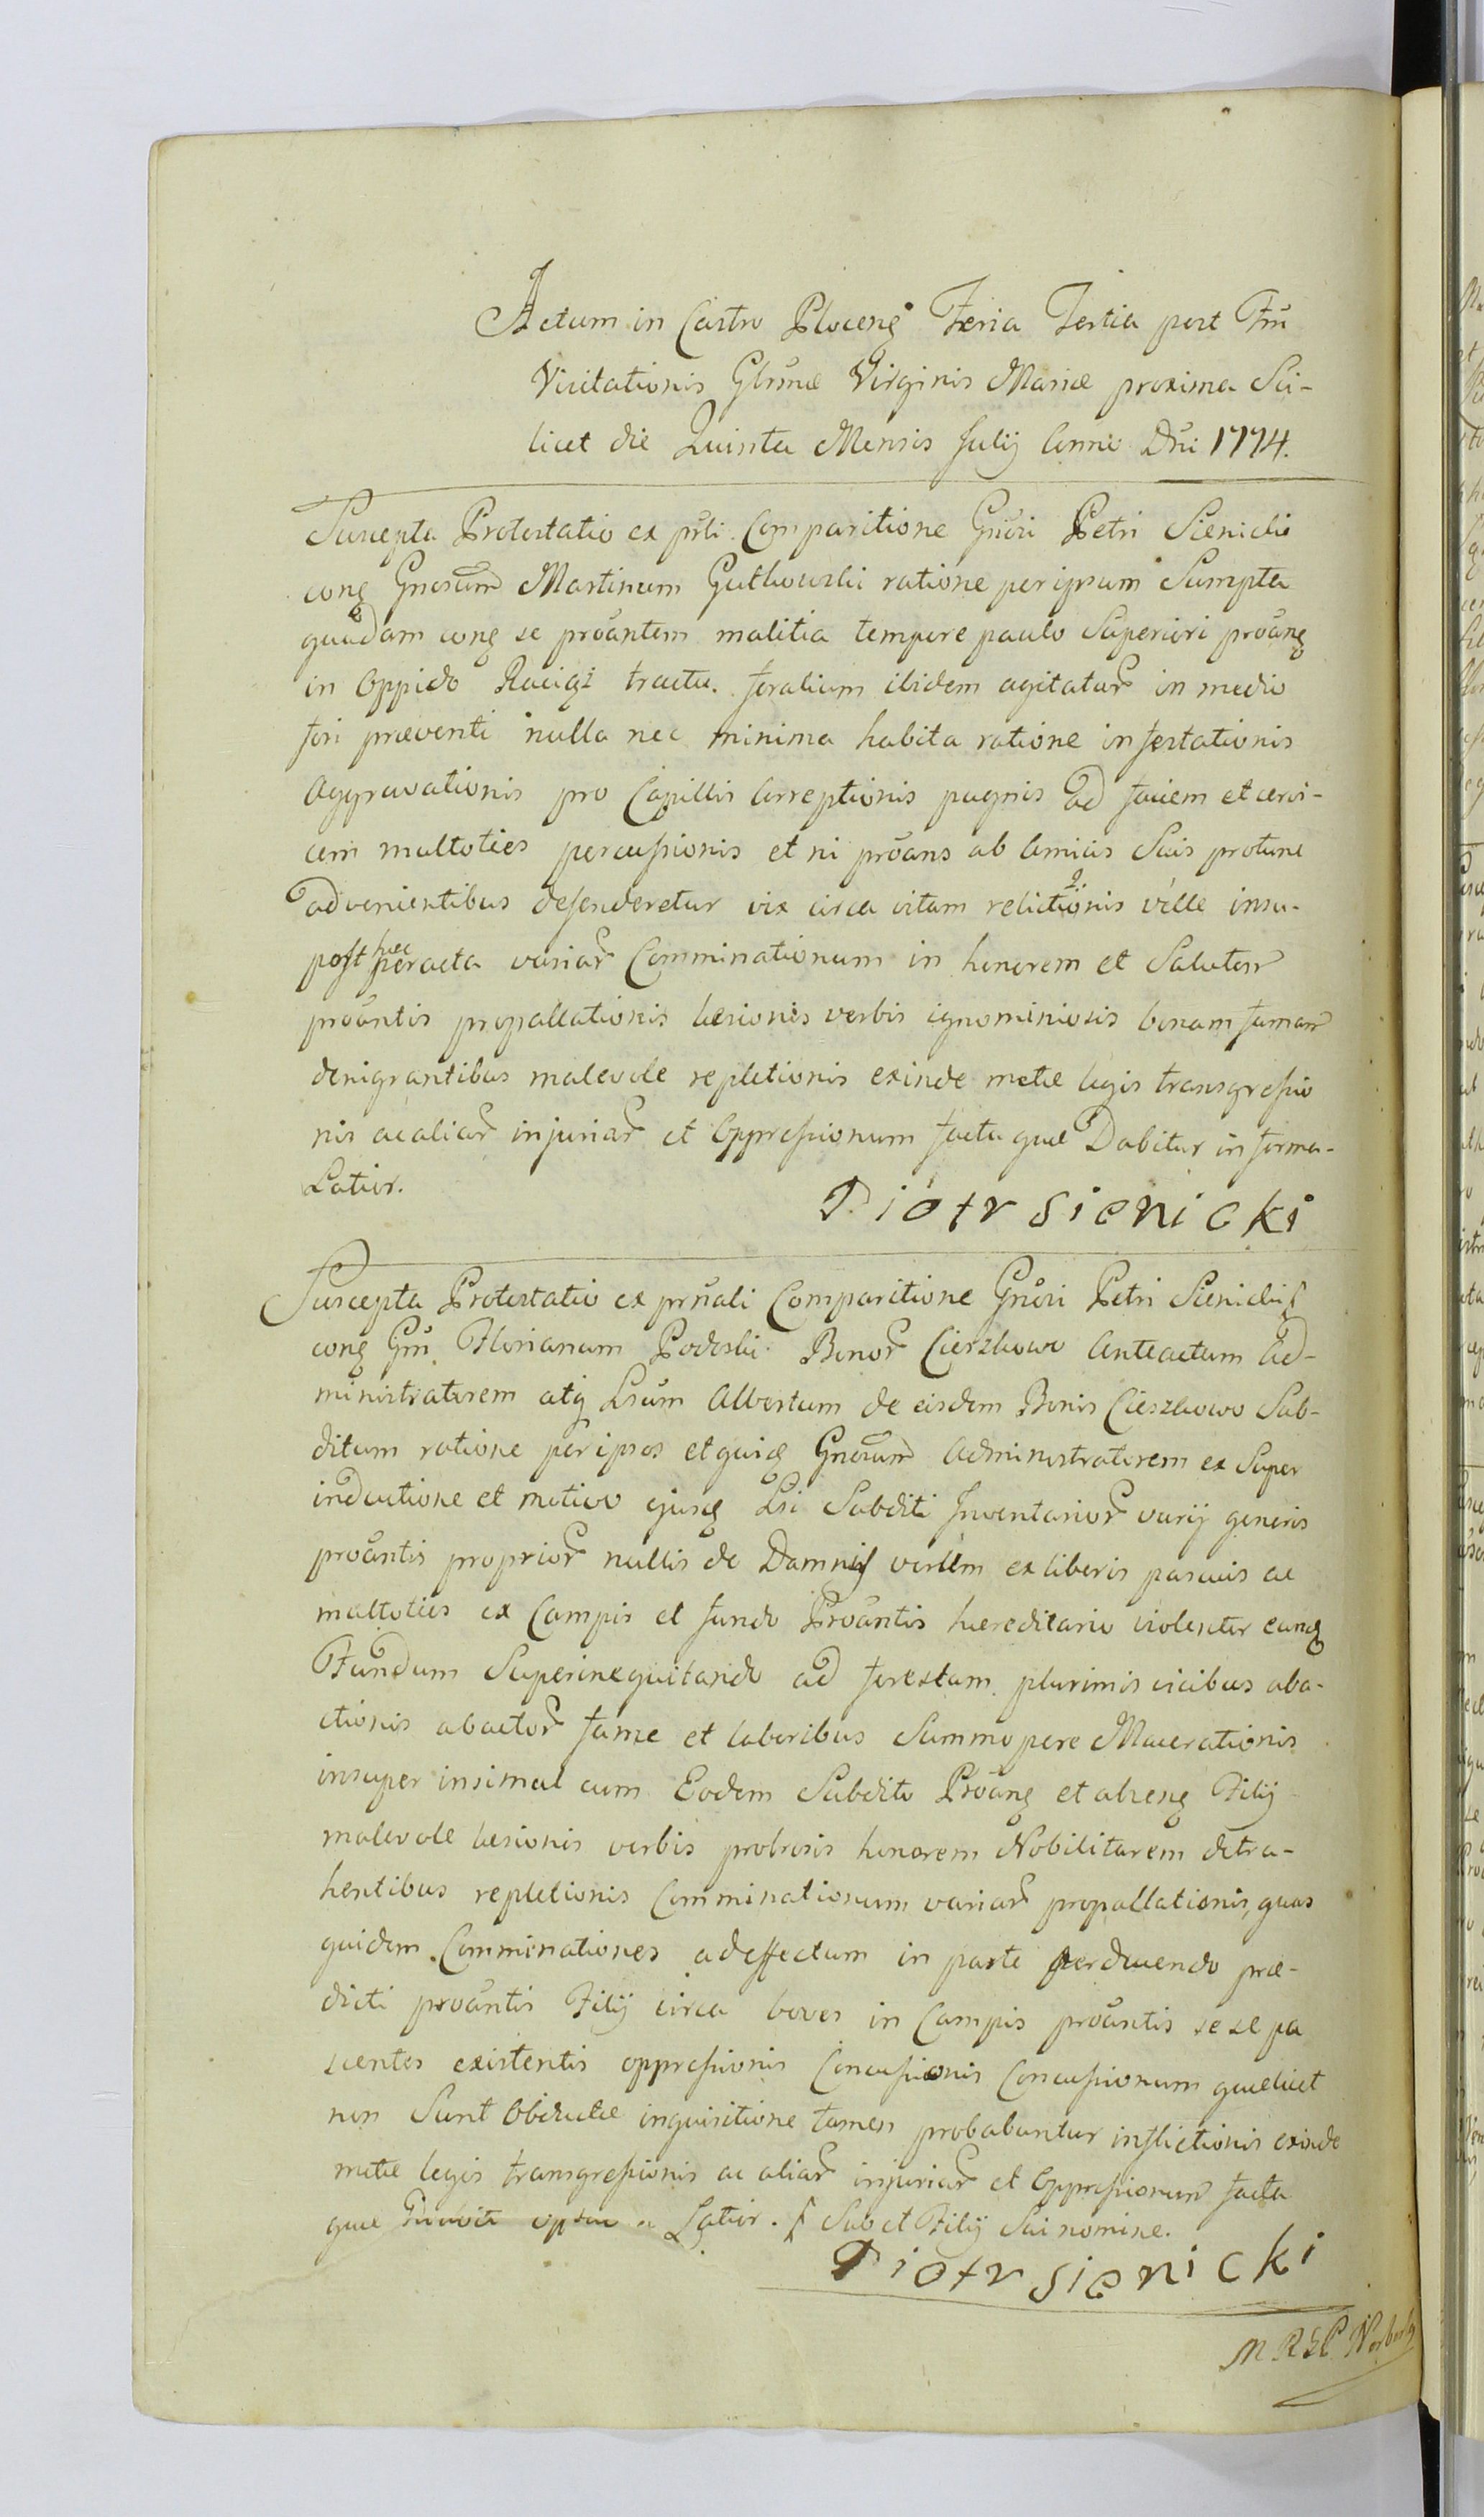 Actum in Castro Plocens Feria Tertia post Ftũ
Visitationis Glsmæ Virginis Mariæ proxima Sci-
licet die Quinta Mensis Julij Anno Dni 1774.
Suscepta Protestatio ex prli Comparitione Gñosi Petri Sienicki
cong Gnosum Martinum Gutkowski ratione per ipsum Sumpta
quadam cong se proãntem malitia tempore paulo Superiori proãng
in Oppido tractu foralium ibidem agitatur in medio
fori præventi nulla nec minima habita ratione infestationis
Aggravationis pro Capillis Arreptionis pugnis ad faciem et cervi-
cem multoties percussionis et ni proãns ab Amicis Suis protunc
advenientibus defenderetur vix circa vitam relictionis velle insu-
post hæc peracta variar Comminationum in honorem et Salutem
proãntis propallationis læsionis verbis ignominiosis bonam famam
denigrantibus malevole repletionis exinde metæ legis transgressio
nis ac aliar injuriar et Oppressionum facta quæ Dabitur in forma
Latior.
Piotr sienicki
Suscepta Protestatio ex prñali Comparitione Gñosi Petri Sienicki ſ
cong Gm Florianum Podoski Bonor Cierzkowo Anteactum Ad-
ministratorem atq Lsum Albertum de eisdem Bonis Cieszkowo Sub-
ditum ratione per ipsos et quidẽ Gnosum Administratorem ex Super
inductione et motivo ejusq Lsi Subditi Inventarior varij generis
proãntis proprior nullis de Damnis verum ex liberis pascuis ac
multoties ex Campis et fundo Proãntis hæreditario violenter eunq
Fundum Superinequitando ad forestam plurimis vicibus aba-
ctionis abactor fame et laboribus Summo pere Macerationis
insuper insimul cum Eodem Subdito Proãng et abseng Filij
malevole læsionis verbis probrosis honorem Nobilitarem detra-
hentibus repletionis Comminationum variar propallationis, quas
quidem Comminationes ad effectum in parte perducendo præ-
dicti proãntis Filij circa boves in Campis proãntis sese pa
scentes existentis oppressionis Concussionis Concussionum quælicet
non Sunt Obductæ inquisitione tamen probabuntur inflictionis exinde
metæ legis transgressionis ac aliar injuriar et Oppressionum facta
quæ Latior. ſ Suo et Filij Sui nomine.
Piotr sienicki
M R